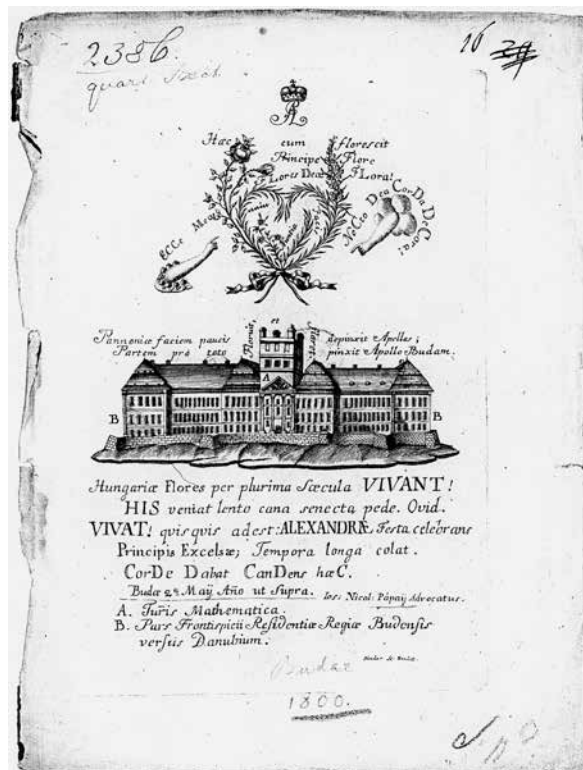 2386.
16 29
quart
Hæc cum florescit
Principe Flore
FLores Deæ FLora!
ECCe Meas
NeCto Dea CorDa DeCora!
Pannonicæ faciem paucis Floruit, et Floret. depinxit Apelles;
Partem pro toto pinxit Apollo Budam.
A
B B
Hungariæ Flores per plurima Sæcula VIVANT!
HIS veniat lento cana senecta pede. Ovid.
VIVAT! quisquis adest: ALEXANDRÆ Festa celebrans
Principis Excelsæ; Tempora longa colat.
CorDe Dabat CanDens hæC.
Budæ 2ª Maij Año ut Supra. Ios: Nicol: Pápaij Advocatus.
A. Turris Mathematica.
B. Pars Frontispicii Residentiæ Regiæ Budensis
versus Danubium.
Budae
1800.